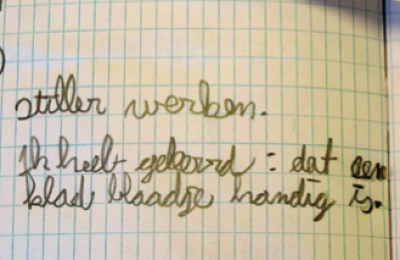 stiller werken.
Ik heb geleerd : dat een
klad blaadje handig is.